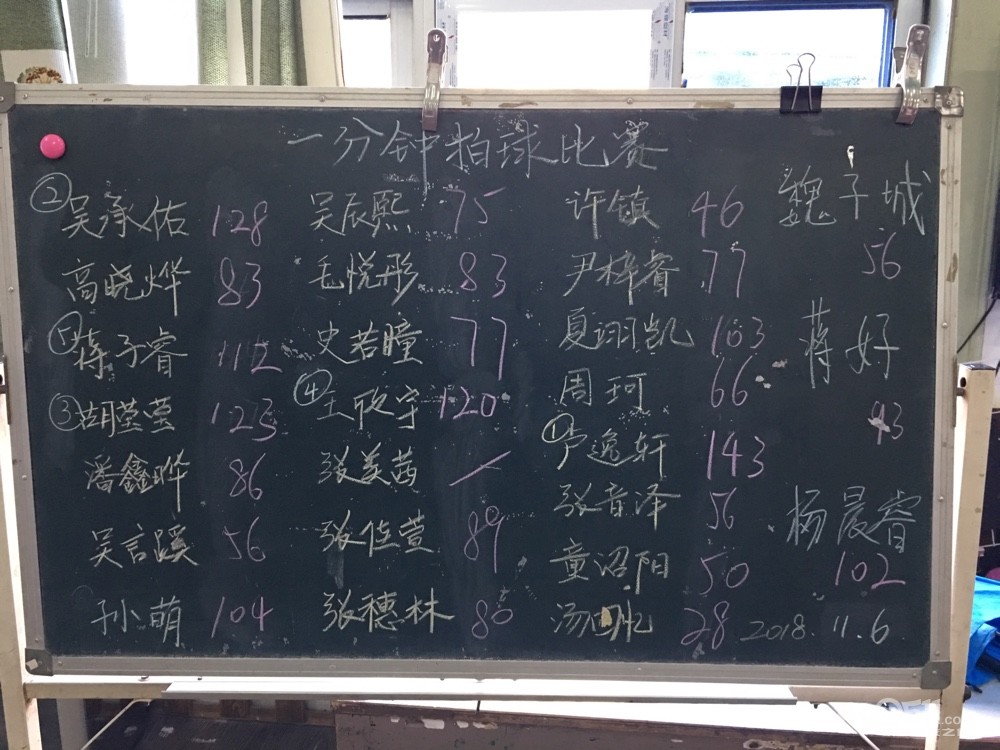 一分钟拍球比赛
② 吴承佑 128
高晓烨 83
⑤ 蒋子睿 112
③ 胡莹莹 123
潘鑫晔 86
吴言蹊 56
孙萌 104
吴辰熙 75
毛悦彤 83
史若瞳 77
④ 王欣宇 120
张美茜 /
张佳萱 89
张穗林 80
许镇 46
尹梓睿 77
夏诩凯 103
周珂 66
① 卢逸轩 143
张音泽 56
童沼阳 50
汤 28
魏子城
56
蒋好
93
杨晨睿
102
2018.11.6